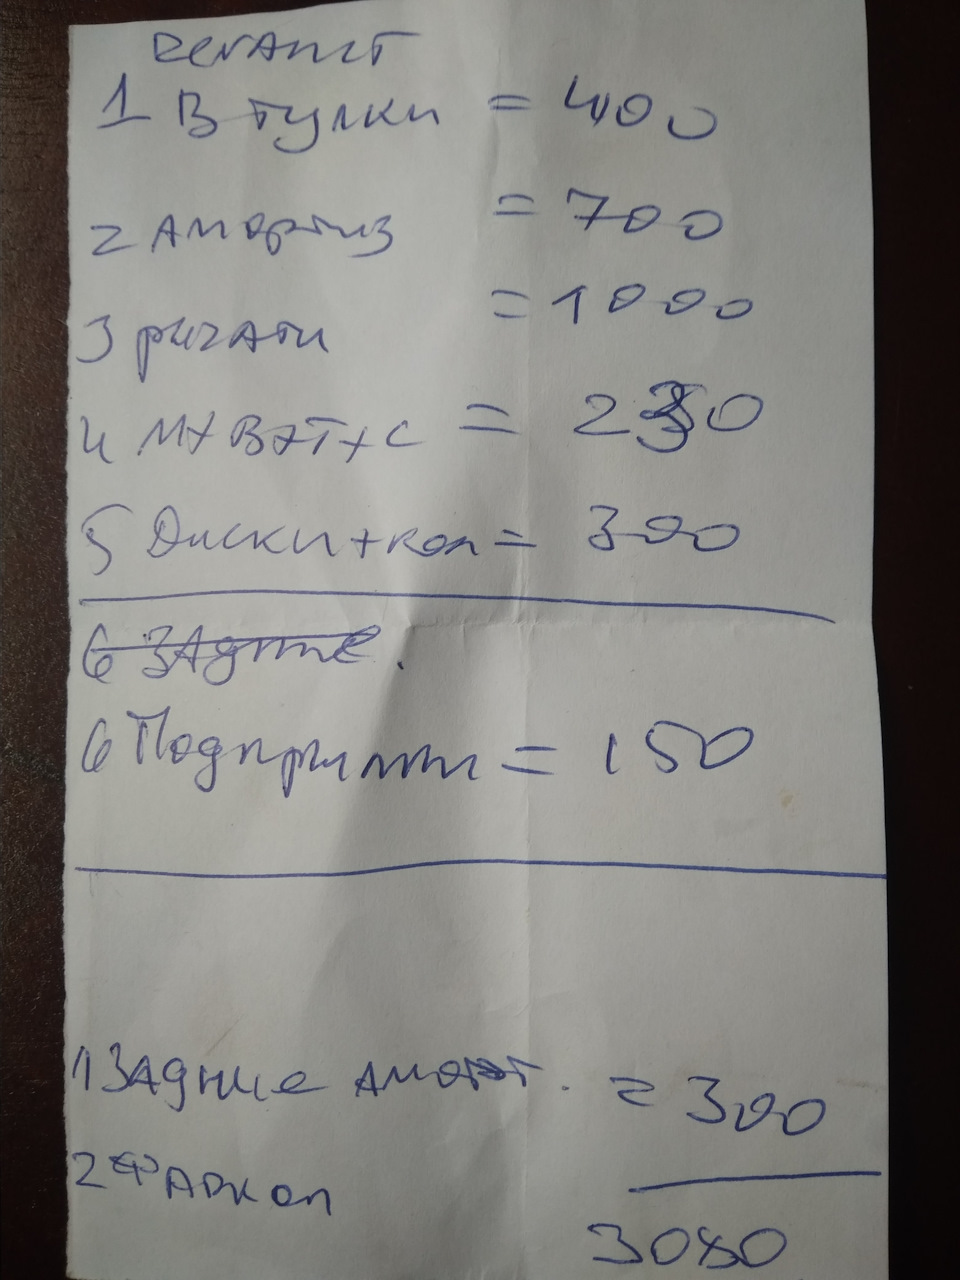 1 Втулки = 400
2 Амортиз = 700
3 рычаги = 1000
4 М+В+Т+С = 230
5 Диски+кол = 300
6 Задние.
6 Подкрылки = 150
1 Задние аморт. = 300
2 Фаркоп
3080